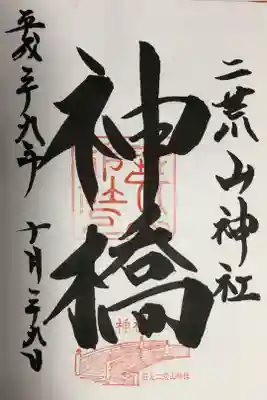 二荒山神社
神橋
平成二十九年 十月二十九日
日光二荒山神社